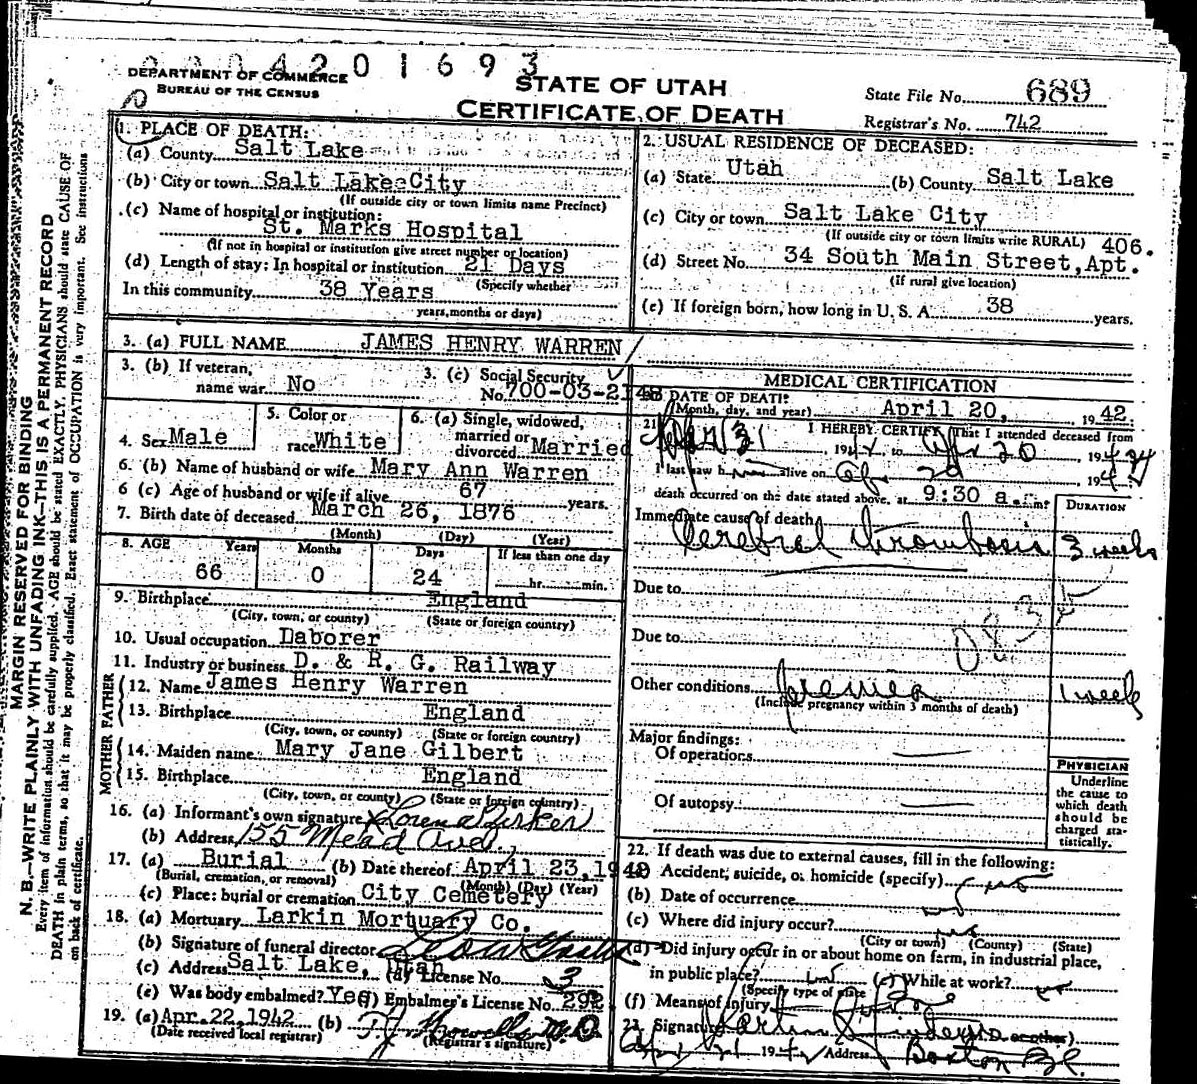 04201693
DEPARTMENT OF COMMERCE
BUREAU OF THE CENSUS
STATE OF UTAH
CERTIFICATE OF DEATH
State File No. 689
Registrar's No. 742
MARGIN RESERVED FOR BINDING
N. B.—WRITE PLAINLY WITH UNFADING INK—THIS IS A PERMANENT RECORD
Every item of information should be carefully supplied. AGE should be stated EXACTLY. PHYSICIANS should state CAUSE OF
DEATH in plain terms, so that it may be properly classified. Exact statement of OCCUPATION is very important. See instructions
on back of certificate.
1. PLACE OF DEATH:
(a) County Salt Lake
(b) City or town Salt Lake City
(If outside city or town limits name Precinct)
(c) Name of hospital or institution:
St. Marks Hospital
(If not in hospital or institution give street number or location)
(d) Length of stay: In hospital or institution 21 Days
(Specify whether
In this community 38 Years
years, months or days)
2. USUAL RESIDENCE OF DECEASED:
(a) State Utah (b) County Salt Lake
(c) City or town Salt Lake City
(If outside city or town limits write RURAL) 406.
(d) Street No. 34 South Main Street, Apt.
(If rural give location)
(e) If foreign born, how long in U. S. A. 38 years.
3. (a) FULL NAME JAMES HENRY WARREN
3. (b) If veteran,
name war No
3. (c) Social Security
No. 700-03-2148
4. Sex Male
5. Color or
race White
6. (a) Single, widowed,
married or
divorced Married
6. (b) Name of husband or wife Mary Ann Warren
6 (c) Age of husband or wife if alive 67 years.
7. Birth date of deceased March 26, 1876
(Month) (Day) (Year)
8. AGE Years Months Days If less than one day
66 0 24 hr. min.
9. Birthplace England
(City, town, or county) (State or foreign country)
10. Usual occupation Laborer
11. Industry or business D. & R. G. Railway
FATHER
12. Name James Henry Warren
13. Birthplace England
(City, town, or county) (State or foreign country)
MOTHER
14. Maiden name Mary Jane Gilbert
15. Birthplace England
(City, town, or county) (State or foreign country)
16. (a) Informant's own signature
(b) Address 155 Mead Ave.,
17. (a) Burial (b) Date thereof April 23, 1942
(Burial, cremation, or removal) (Month) (Day) (Year)
(c) Place: burial or cremation City Cemetery
18. (a) Mortuary Larkin Mortuary Co.
(b) Signature of funeral director
(c) Address Salt Lake, Utah (d) License No. 3
(e) Was body embalmed? Yes (f) Embalmer's License No. 292
19. (a) Apr. 22, 1942 (b) M.D.
(Date received local registrar) (Registrar's signature)
MEDICAL CERTIFICATION
20. DATE OF DEATH:
(Month, day, and year) April 20, 1942.
21. I HEREBY CERTIFY, That I attended deceased from
31, 19 to Apr 20, 1942
I last saw h alive on Apr 20 194
death occurred on the date stated above, at 9:30 a. m.
DURATION
Immediate cause of death
Cerebral thrombosis 3 weeks
Due to
083
Due to
Other conditions Uremia 1 week
(Include pregnancy within 3 months of death)
Major findings:
Of operations
Of autopsy
PHYSICIAN
Underline
the cause to
which death
should be
charged sta-
tistically.
22. If death was due to external causes, fill in the following:
(a) Accident, suicide, or homicide (specify) no
(b) Date of occurrence
(c) Where did injury occur?
(City or town) (County) (State)
(d) Did injury occur in or about home on farm, in industrial place,
in public place? (e) While at work?
(Specify type of place
(f) Means of Injury
23. Signature (M. D. or other)
21 1942 Address Boston Bl.